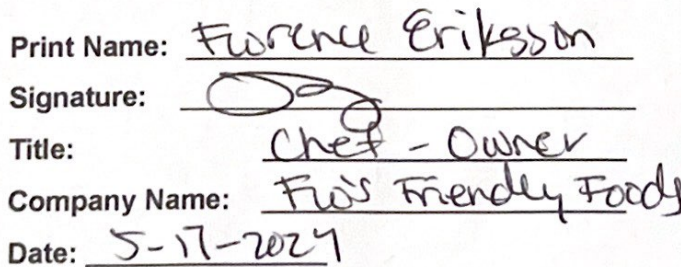 Print Name: Florence Eriksson
Signature:
Title: Chef - Owner
Company Name: Flo's Friendly Foods
Date: 5-17-2024